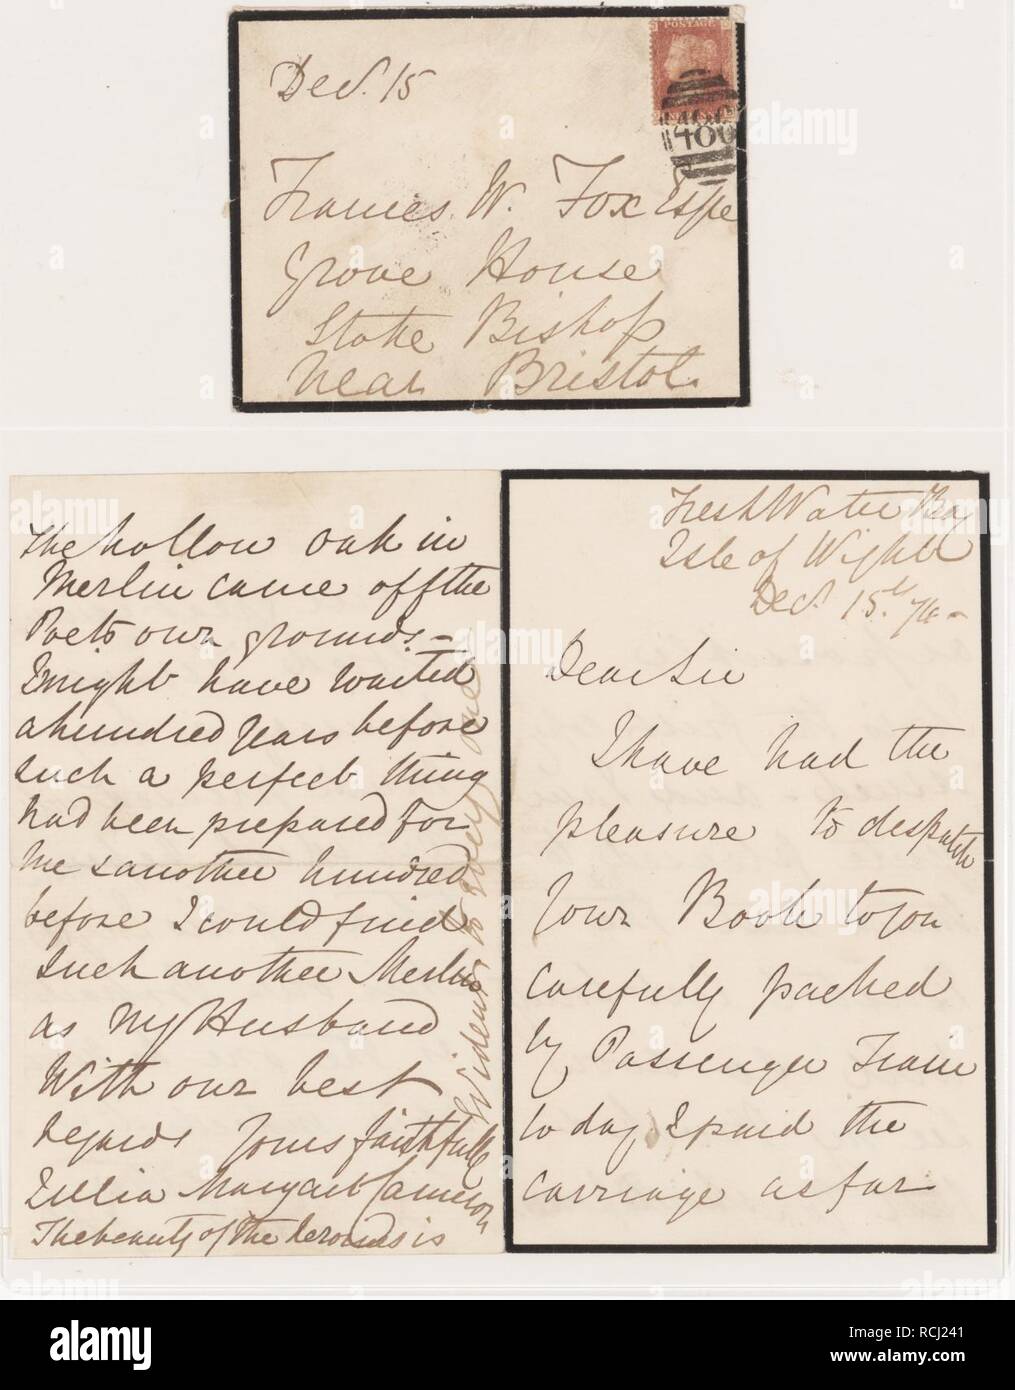 Dec. 15
POSTAGE
Frances W. Fox Esqre
Grove House
Stoke Bishop
near Bristol.
Fresh Water Bay
Isle of Wight
Dec. 15th. 74 -
Dear Sir
I have had the
pleasure to despatch
your Book to you
carefully packed
by Passenger Train
to day I paid the
carriage as far
The hollow oak in
Merlin came off the
Poets own grounds -
I might have waited
a hundred years before
such a perfect thing
had been prepared for
me & another hundred
before I could find
such another Merlin
as my Husband
With our best
regards yours faithfully
Julia Margaret Cameron
The beauty of the is
Evident to every one
alamy
Image ID: RCJ241
www.alamy.com